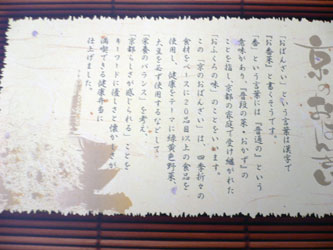 「おばんざい」という言葉は漢字で
『お番菜』と書くそうです。
『番』という言葉には『普通の』という
意味があり、『普段の菜・おかず』の
ことを指し、京都の家庭で受け継がれた
『おふくろの味』のことをいいます。
この『京のおばんざい』は、四季折々の
食材をベースに20品目以上の食品を
使用し、健康をテーマに緑黄色野菜、
大豆を必ず使用するなどして
「栄養のバランス」を考え、
「京都らしさが感じられる」ことを
キーワードに優しさと懐かしさが
満喫できる健康弁当に
仕上げました。